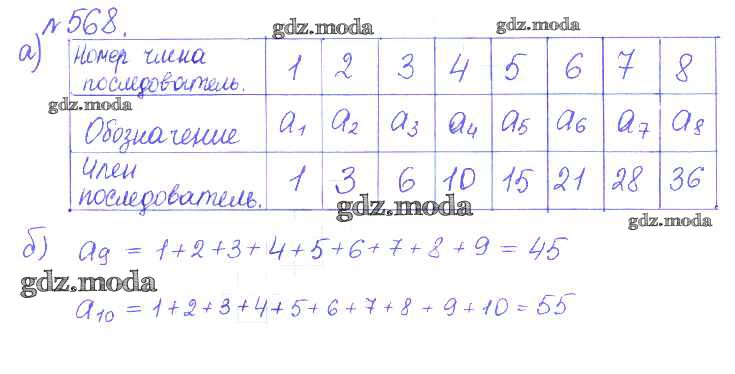 №568.
gdz.moda
gdz.moda
а)
Номер члена последователь. 1 2 3 4 5 6 7 8
gdz.moda
Обозначение a1 a2 a3 a4 a5 a6 a7 a8
Член последователь. 1 3 6 10 15 21 28 36
gdz.moda
gdz.moda
б) a9 = 1+2+3+4+5+6+7+8+9=45
gdz.moda
a10 = 1+2+3+4+5+6+7+8+9+10=55